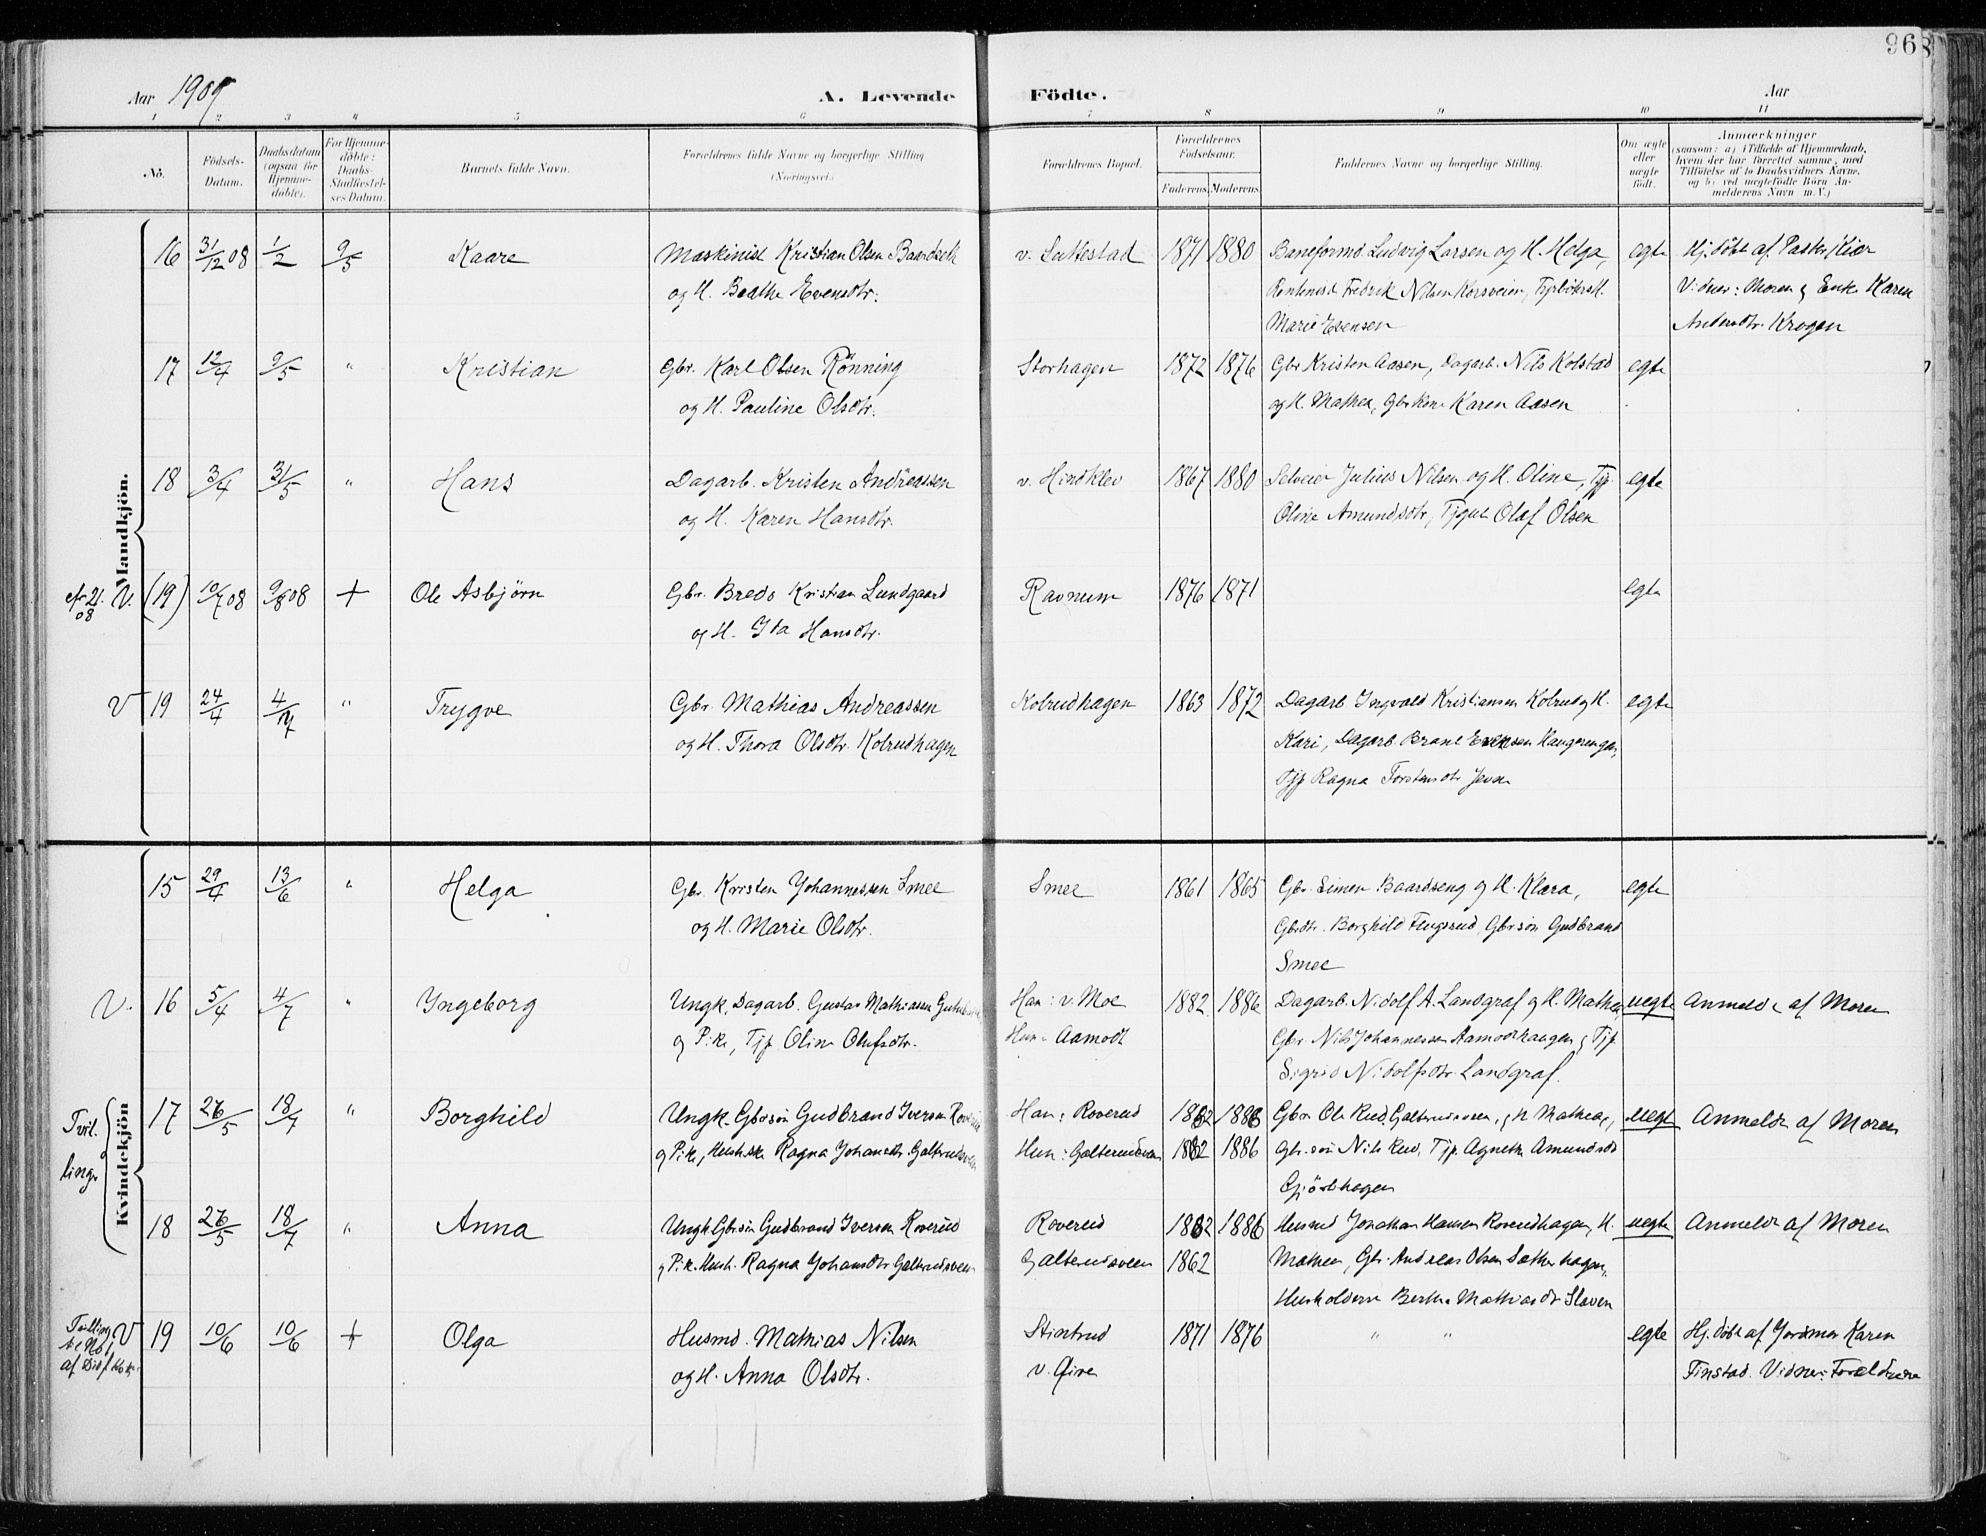 968
Aar 1909
A. Levende Födte.
Aar
1 2 3 4 5 6 7 8 9 10 11
No.
Födsels-Datum.
Daabsdatum (ogsaa for Hjemme-döbte).
For Hjemme-döbte: Daabs-Stadfæstelses Datum.
Barnets fulde Navn.
Forældrenes fulde Navne og borgerlige Stilling (Næringsvei).
Forældrenes Bopæl.
Forældrenes Födselsaar.
Faderens. Moderens.
Faddernes Navne og borgerlige Stilling.
Om ægte eller uægte födt.
Anmærkninger
(saasom: a) i Tilfælde af Hjemmedaab, hvem der har forrettet samme, med Tilföielse af to Daabsvidners Navne, og b) ved uægtefödte Börn Anmelderens Navn m. V.)
Mandkjön.
16 31/12 08 1/2 9/5 Kaare Maskinist Kristian Olsen Baardseth v. Sukkestad 1871 1880 Baneformd Ludvig Larsen og H. Helga, egte Hj.döbt af Pastor Kiær
og H. Beathe Evensdtr. Fredrik Nilsen Korsveien, Vidner: Moren og Enke Karen
Marie Evensen Andersdtr. Krogen
17 12/4 9/5 " Kristian Gbr. Karl Olsen Rönning Storhagen 1872 1876 Gbr Kristen Aasen, Dagarb. Nils Kolstad egte
og H. Pauline Olsdtr. og H. Mathea, Gbrkone Karen Aasen
18 3/4 31/5 " Hans Dagarb. Kristen Andreassen v. Hindklev 1867 1880 Selveier Julius Nilsen og H. Oline, Tjp. egte
og H. Karen Hansdtr. Oline Amundsdtr, Tjgut Olaf Olsen
cfr 21. 08 V. (19) 10/7 08 9/8 08 + Ole Asbjörn Gbr. Brede Kristian Lundgaard Ravnum 1876 1871 egte
og H. Ida Hansdtr.
V 19 24/4 4/7 " Trygve Gbr. Mathias Andreassen Kolrudhagen 1863 1872 Dagarb Ingvald Kristiansen Kolrud og H. egte
og H. Thora Olsdtr. Kolrudhagen Kari, Dagarb. Brant Evensen Haugerengen,
Tjp Ragna Torstensdtr
Kvindekjön
15 29/4 13/6 " Helga Gbr. Kristen Johannessen Smee Smee 1861 1865 Gbr. Simen Baardseng og H. Klara, egte
og H. Marie Olsdtr. Gbrdtr. Borghild Flugsrud, Gbrsön Gudbrand
Smee
V. 16 5/4 4/7 " Yngeborg Ungk. Dagarb. Gustav Mathiesen Han: v. Moe 1882 1886 Dagarb. Nidolf A. Landgraf og H. Mathea uegte Anmeldt af Moren
og Pike, Tjp Oline Olufsdtr. Hun: Aamodt Gbr Nils Johannessen Aamodthaugen og Tjp
Sigrid Nidolfsdtr Landgraf.
Tvillinger
17 26/5 18/7 " Borghild Ungk. Gbrsön Gudbrand Iversen Roverud Han: Roverud 1882 1886 Gbr Ole Rud Galterudsveen, og H Mathea, uegte Anmeldt af Moren
og Pike, Hush. Ragna Johansdtr. Galterudsveen Hun: Galterudsveen 1882 1886 Gbr.sön Nils Rud, Tjp. Agnethe Amundsdtr
18 26/5 18/7 " Anna Ungk Gbrsön Gudbrand Iversen Roverud Roverud 1882 1886 Husmd Jonathan Hansen Roverudhagen, H. uegte Anmeldt af Moren
og Pike Hush. Ragna Johansdtr Galterudsveen Galterudsveen 1862 Mathea, Gbr. Andreas Olsen Sætherhagen,
Husholderske Berthe Mathiasdtr Slaven
Tvilling V 19 10/6 10/6 + Olga Husmd. Mathias Nilsen Stintrud 1871 1876 " " egte Hj.döbt af Jordmor Karen
og H. Anna Olsdtr. Finstad. Vidner: Forældrene